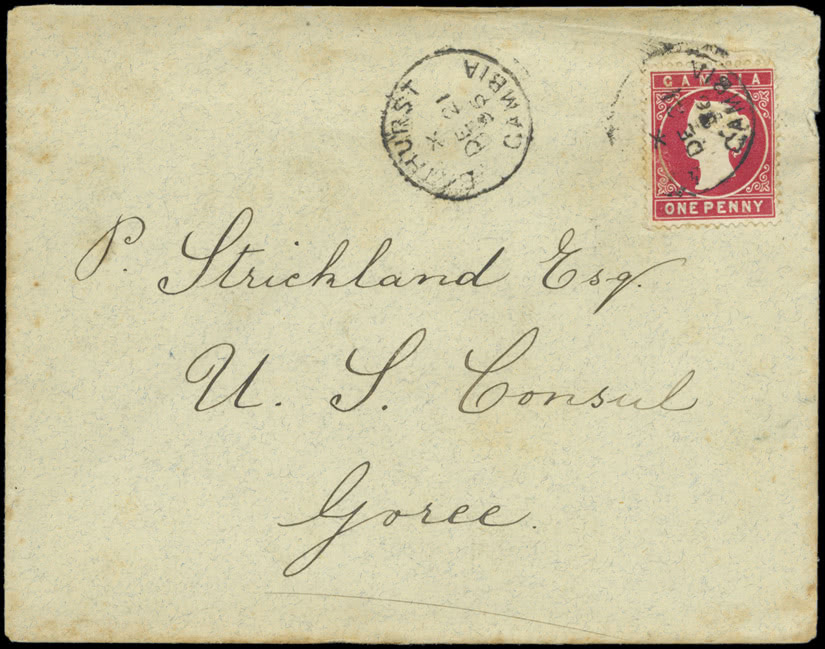 BATHURST
GAMBIA
DE 21
GAMBIA
ONE PENNY
GAMBIA
DE
P. Strickland Esq.
U. S. Consul
Goree.